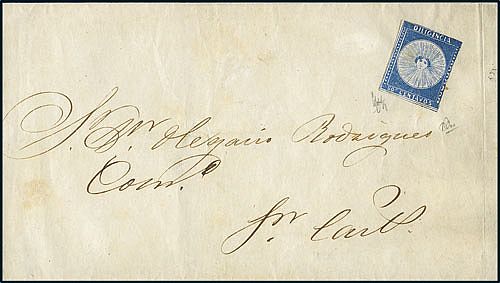 DILIGENCIA
60 CENTAVOS
Sr. Dn. Olegario Rodrigues
Com.e
Sn Carl.